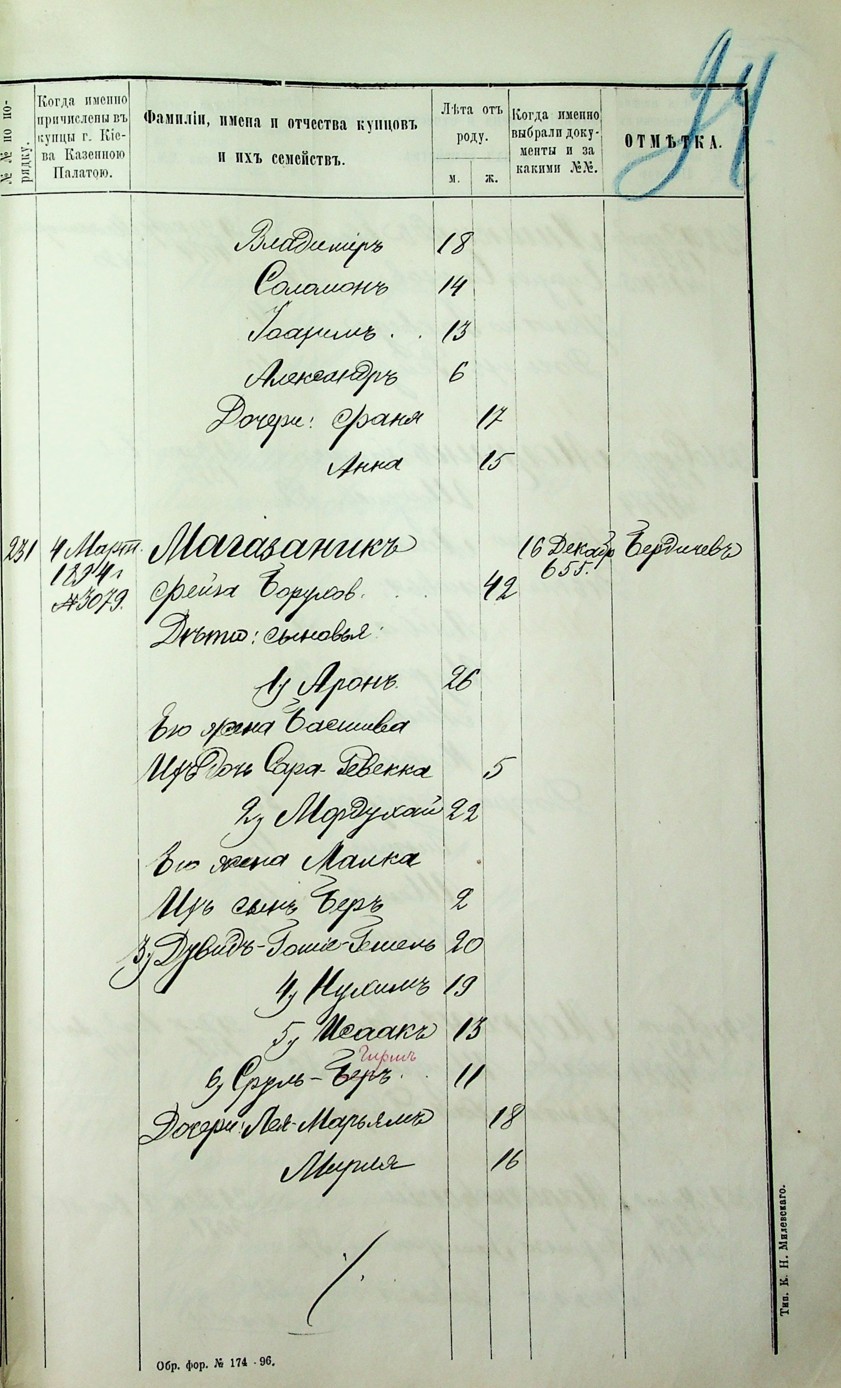 94
№№ по по-
рядку.
Когда именно
причислены въ
купцы г. Кіе-
ва Казенною
Палатою.
Фамиліи, имена и отчества купцовъ
и ихъ семействъ.
Лѣта отъ
роду.
м. ж.
Когда именно
выбрали доку-
менты и за
какими №№.
ОТМѢТКА.
Владиміръ 18
Соломонъ 14
Іоахимъ . . 13
Александръ 6
Дочери: Фаня 17
Анна 15
231 4 Март. Магазаникъ 16 Декабр Бердичевъ
1894 г 655.
№3079. Фейга Борухов. 42
Дѣти: сыновья:
1) Аронъ 26
Его жена Басшева
Ихъ дочь Сара-Ревекка 5
2) Мордухай 22
Его жена Малка
Ихъ сынъ Беръ 2
3) Дувидъ- -Гешель 20
4) Нухимъ 19
5) Исаакъ 13
Гиршъ
6) Сруль-Беръ . . 11
Дочери: Лея-Марьямъ 18
Мирля 16
Обр. фор. № 174 - 96.
Тип. К. Н. Милевскаго.